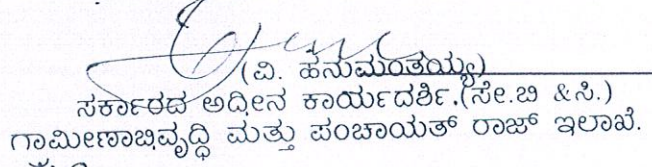 (ವಿ. ಹನುಮಂತಯ್ಯ)
ಸರ್ಕಾರದ ಅಧೀನ ಕಾರ್ಯದರ್ಶಿ.(ಸೇ.ಬಿ &ಸಿ.)
ಗಾಮೀಣಾಬಿವೃದ್ಧಿ ಮತ್ತು ಪಂಚಾಯತ್ ರಾಜ್ ಇಲಾಖೆ.